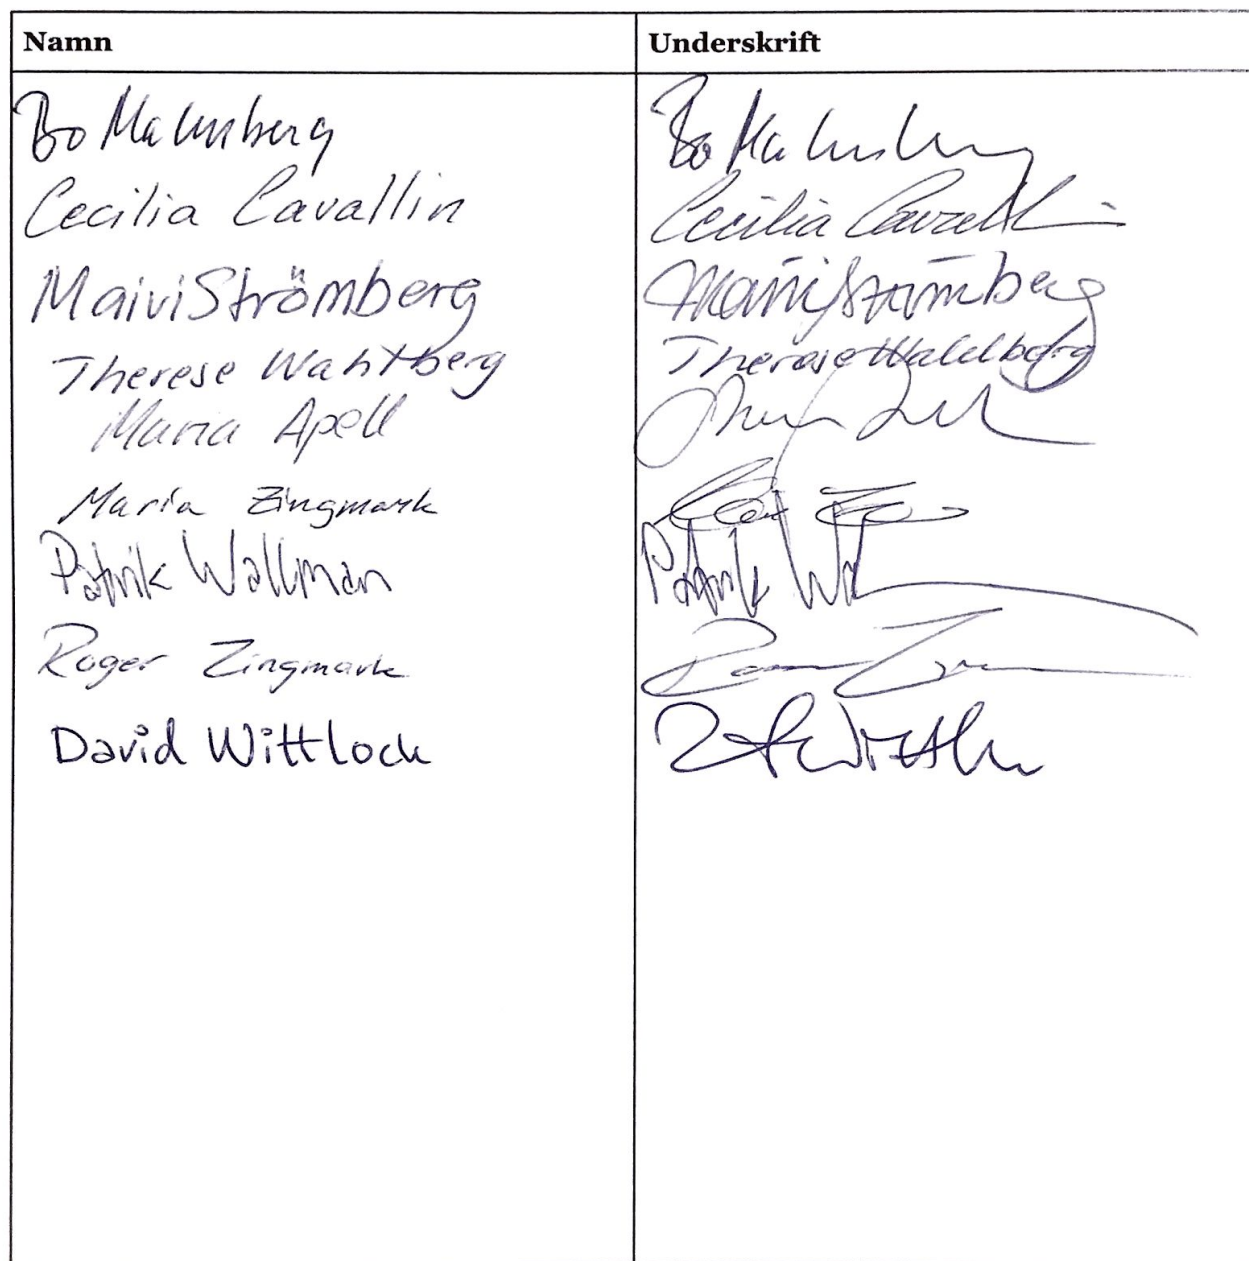 Namn Underskrift
Bo Malmberg Bo Malmberg
Cecilia Cavallin Cecilia Cavallin
Maivi Strömberg Maivi Strömberg
Therese Wahlberg Therese Wahlberg
Maria Apell
Maria Zingmark
Patrik Wallman Patrik
Roger Zingmark
David Wittlock